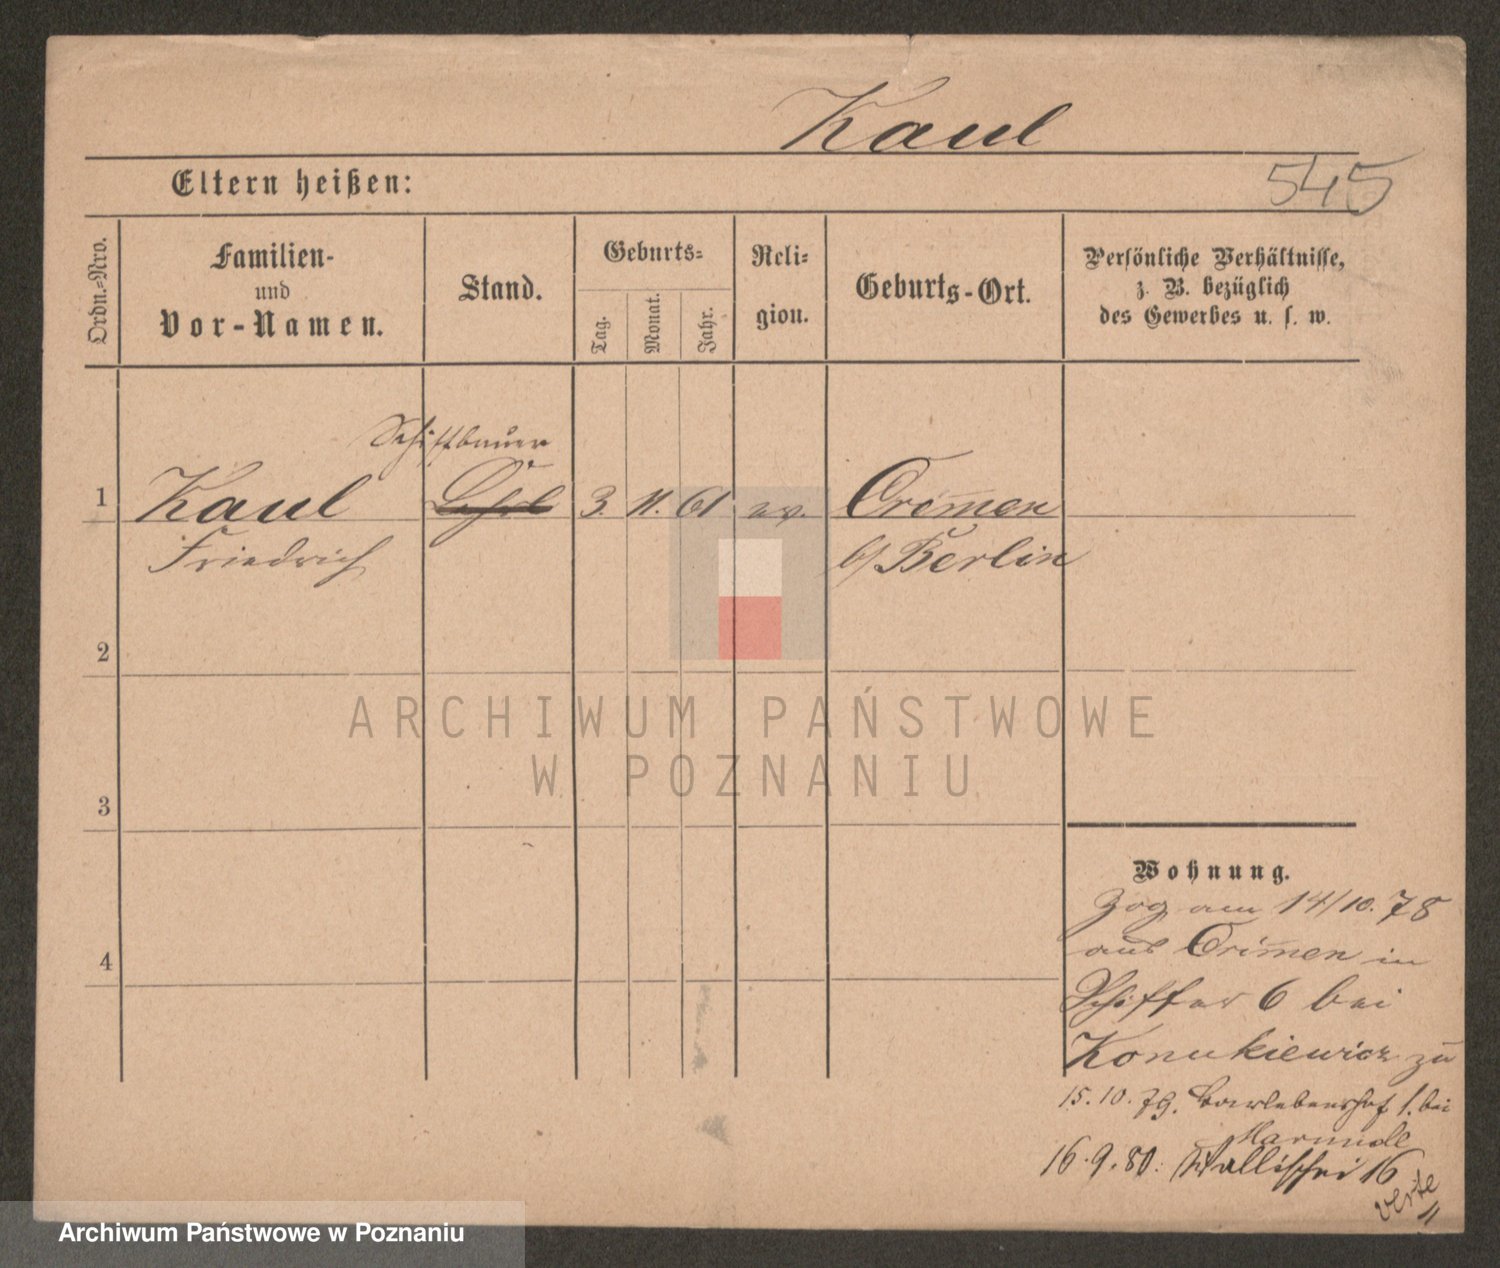 Kaul
545
Eltern heißen:
Ordn.=Nro.
Familien-
und
Vor-Namen.
Stand.
Geburts=
Tag.
Monat.
Jahr.
Reli=
gion.
Geburts-Ort.
Persönliche Verhältnisse,
z. B. bezüglich
des Gewerbes u. s. w.
Schiffbauer
1 Kaul 3. 11. 61 ev. Crem̄en
Friedrich b/ Berlin
2
ARCHIWUM PAŃSTWOWE
W POZNANIU
3
Wohnung.
Zog am 14/10. 78
aus Crem̄en in
Schiffer 6 bei
Konukiewicz zu
15. 10. 79. 1. bei
16. 9. 80. Wallischei 16
verte
4
Archiwum Państwowe w Poznaniu